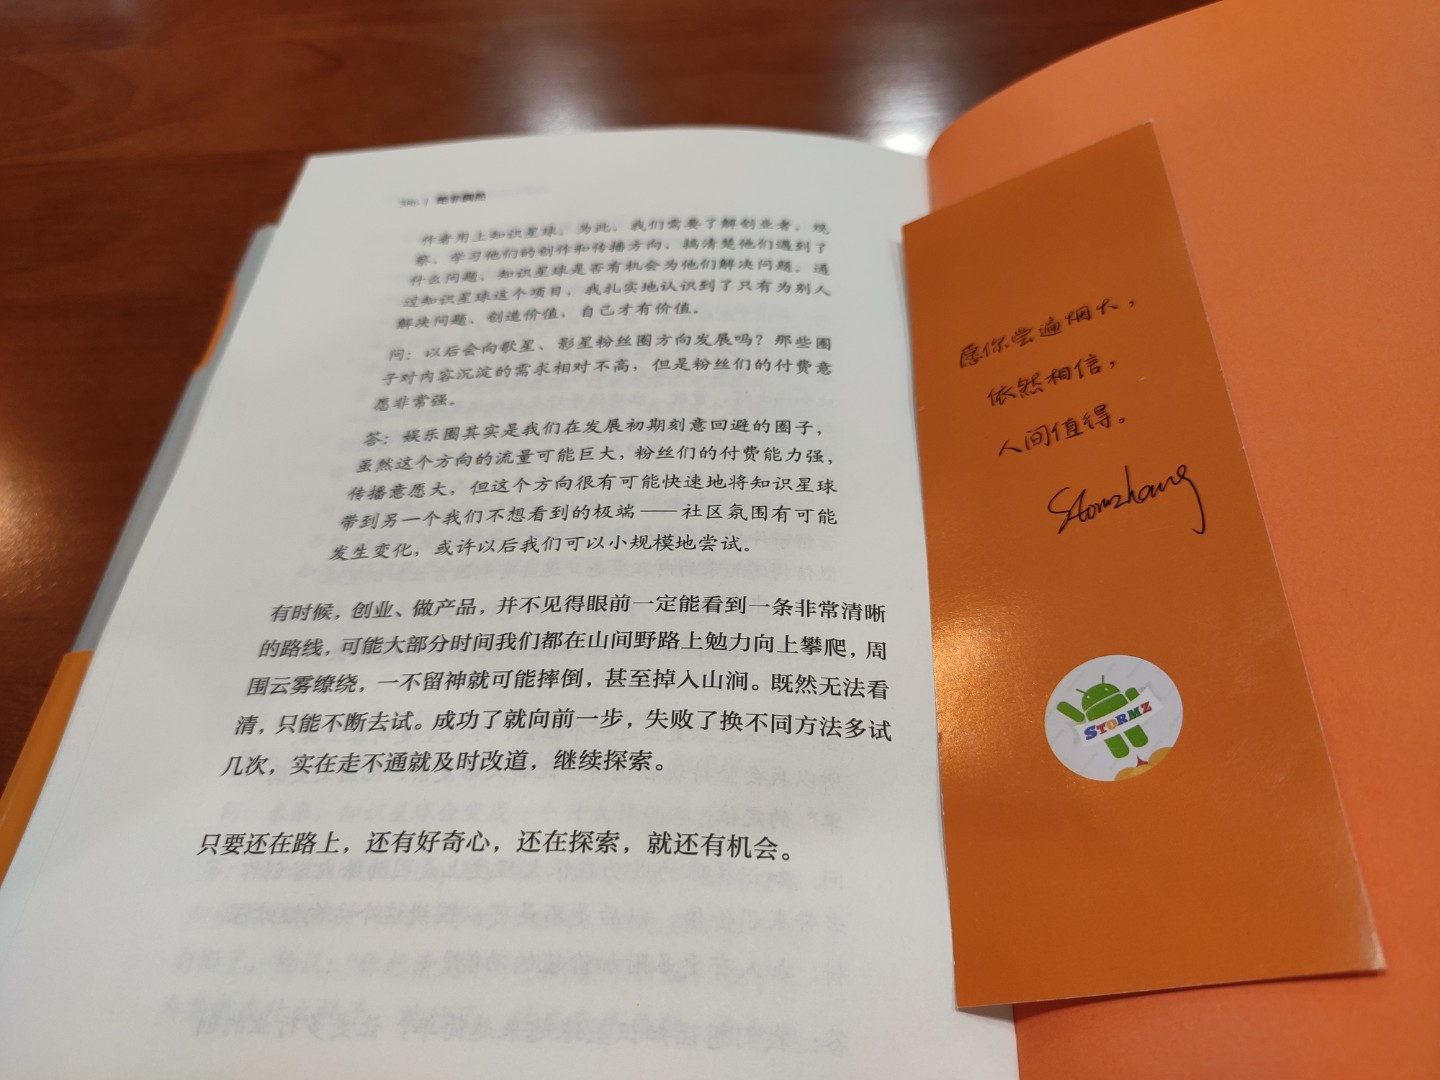 作者用上知识星球。为此，我们需要了解创业者，观
察、学习他们的创作和传播方向，搞清楚他们遇到了
什么问题，知识星球是否有机会为他们解决问题。通
过知识星球这个项目，我扎实地认识到了只有为别人
解决问题、创造价值，自己才有价值。
问：以后会向歌星、影星粉丝圈方向发展吗？那些圈
子对内容沉淀的需求相对不高，但是粉丝们的付费意
愿非常强。
答：娱乐圈其实是我们在发展初期刻意回避的圈子，
虽然这个方向的流量可能巨大，粉丝们的付费能力强，
传播意愿大，但这个方向很有可能快速地将知识星球
带到另一个我们不想看到的极端——社区氛围有可能
发生变化，或许以后我们可以小规模地尝试。
有时候，创业、做产品，并不见得眼前一定能看到一条非常清晰
的路线，可能大部分时间我们都在山间野路上勉力向上攀爬，周
围云雾缭绕，一不留神就可能摔倒，甚至掉入山涧。既然无法看
清，只能不断去试。成功了就向前一步，失败了换不同方法多试
几次，实在走不通就及时改道，继续探索。
只要还在路上，还有好奇心，还在探索，就还有机会。
愿你尝遍烟火，
依然相信，
人间值得。
Stormzhang
STORMZ